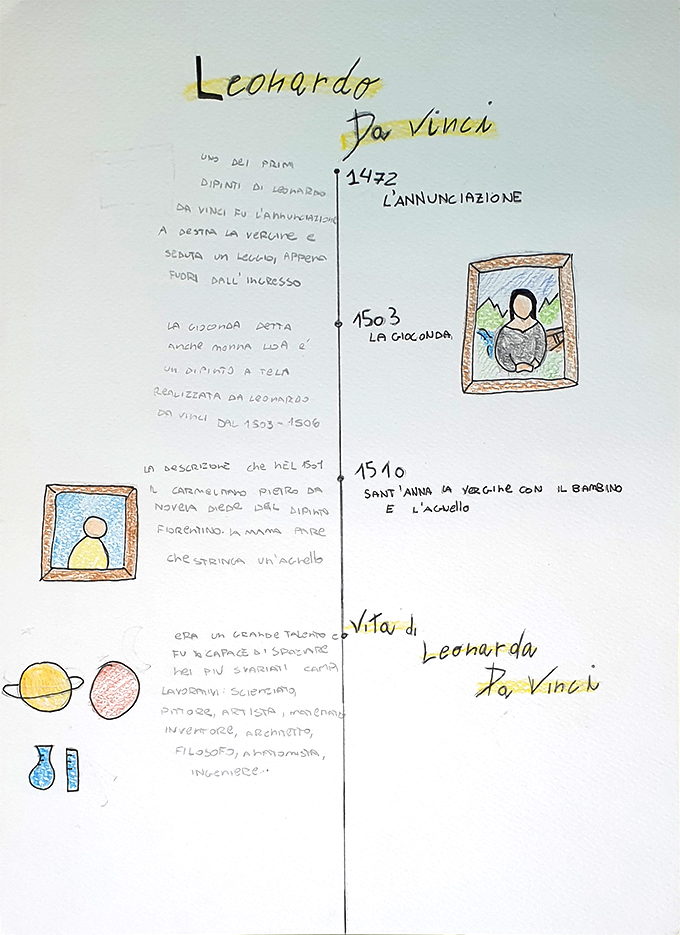 Leonardo
Da Vinci
1472
L'ANNUNCIAZIONE
UNO DEI PRIMI
DIPINTI DI LEONARDO
DA VINCI FU L'ANNUNCIAZIONE
A DESTRA LA VERGINE E
SEDUTA UN LEGGIO, APPENA
FUORI DALL'INGRESSO
1503
LA GIOCONDA
LA GIOCONDA DETTA
anche MONNA LISA E'
UN DIPINTO A TELA
REALIZZATA DA LEONARDO
DA VINCI DAL 1503-1506
1510
SANT'ANNA LA VERGINE CON IL BAMBINO
E L'AGNELLO
LA DESCRIZIONE che NEL 1501
IL CARMELITANO PIETRO DA
NOVELA DIEDE DEL DIPINTO
FIORENTINO. LA MAMA PARE
che STRINGA UN'AGNELLO
Vita di
Leonarda
Da Vinci
ERA UN GRANDE TALENTO E
FU CAPACE DI SPAZIARE
NEI PIÙ SVARIATI CAMPI
LAVORATIVI: SCIENZIATO,
PITTORE, ARTISTA,
INVENTORE, ARCHITETTO,
FILOSOFO, ANATOMISTA,
INGENIERE..